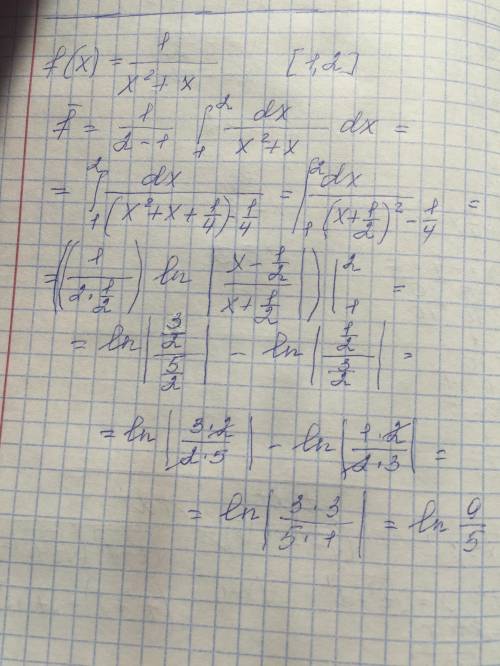 f(x) = 1/(x² + x) [1,2]
f̄ = 1/(2-1) ∫₁² dx/(x²+x) dx =
= ∫₁² dx/((x²+x+1/4)-1/4) = ∫₁² dx/((x+1/2)² - 1/4) =
= ((1/(2·1/2)) ln |(x-1/2)/(x+1/2)|) |₁² =
= ln |(3/2)/(5/2)| - ln |(1/2)/(3/2)| =
= ln |(3·2)/(2·5)| - ln |(1·2)/(2·3)| =
= ln |(3·3)/(5·1)| = ln 9/5